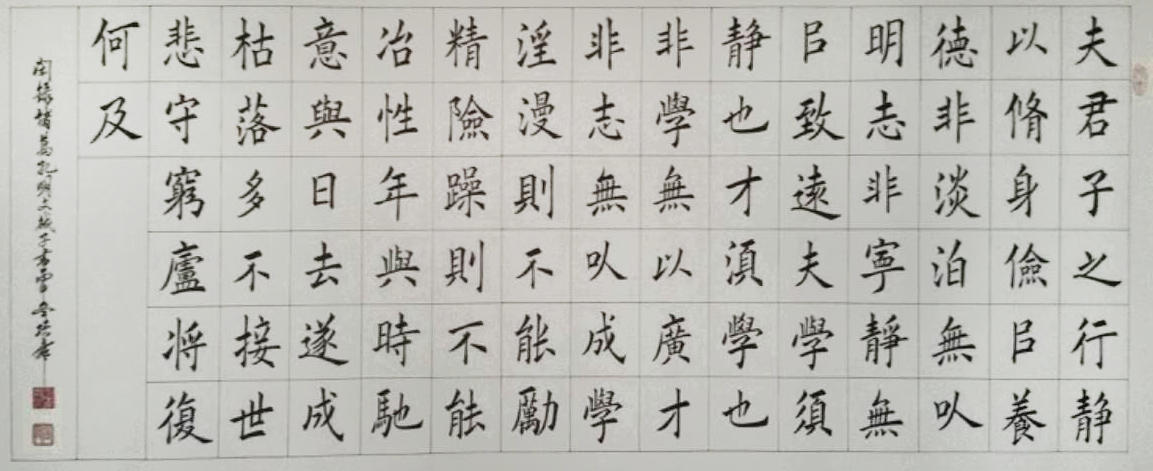 夫君子之行静
以脩身儉㠯養
德非淡泊無㕥
明志非寧靜無
㠯致遠夫學須
静也才湏學也
非學無以廣才
非志無㕥成學
淫漫則不能勵
精險躁則不能
冶性年與時馳
意與日去遂成
枯落多不接世
悲守窮廬将復
何及
錄諸葛孔明文誡子書